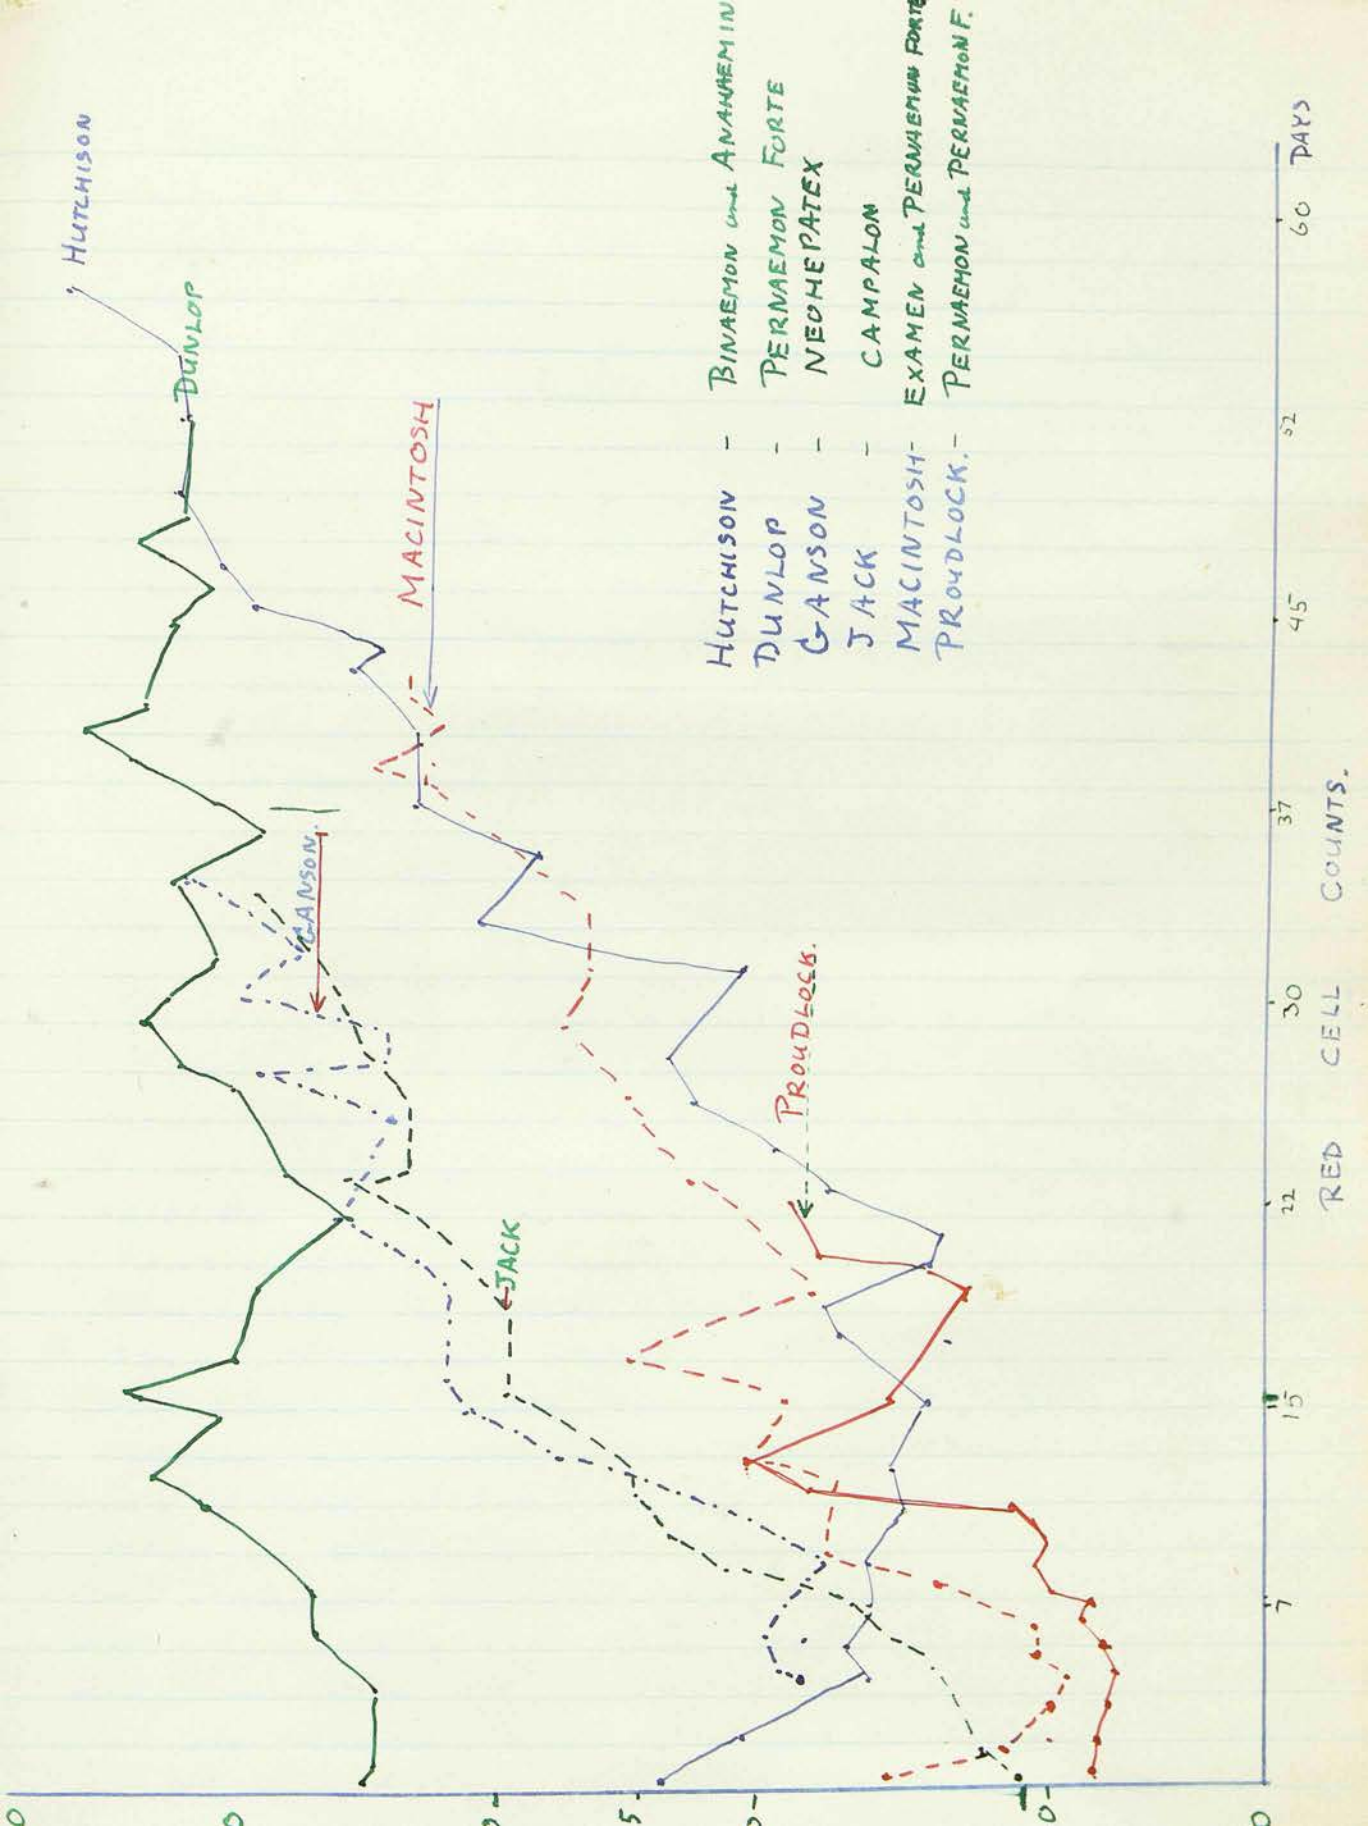 HUTCHISON
DUNLOP
MACINTOSH
GANSON.
JACK
PROUDLOCK.
HUTCHISON - BINAEMON and ANAHAEMIN
DUNLOP - PERNAEMON FORTE
GANSON - NEOHEPATEX
JACK - CAMPALON
MACINTOSH - EXAMEN and PERNAEMON FORTE
PROUDLOCK. - PERNAEMON and PERNAEMON F.
0
0
0
5
0
0
0
7 15 22 30 37 45 52 60 DAYS
RED CELL COUNTS.